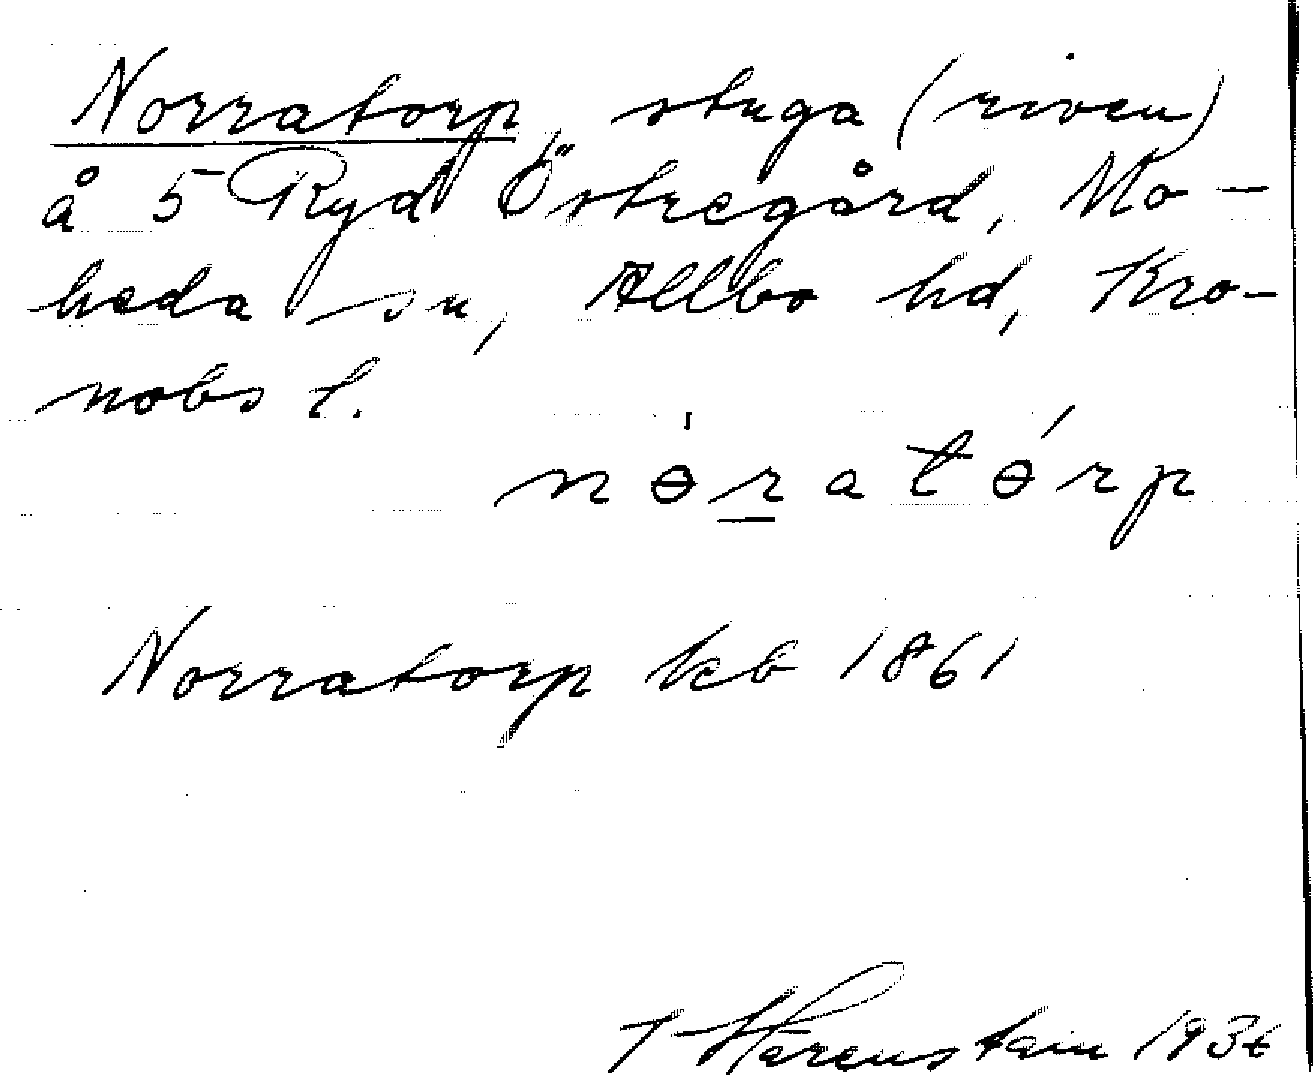 Norratorp, stuga (riven)
å 5 Ryd Östregård, Mo-
heda sn, Allbo hd, Kro-
nobs l.
nɵ̍r̲atɵ́rp
Norratorp kb 1861
T 193